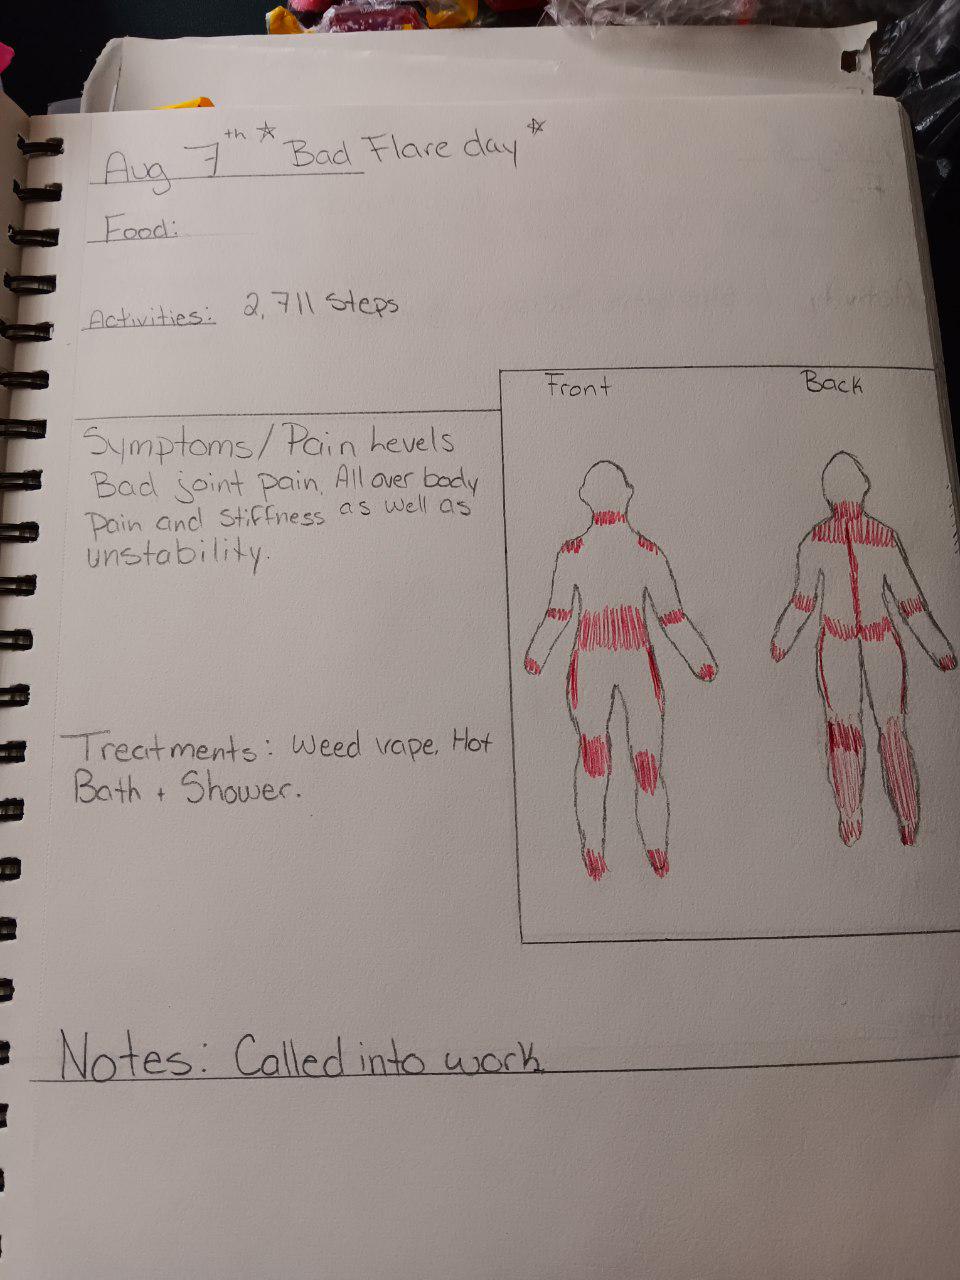 Aug 7th ☆ Bad Flare day ☆
Food:
Activities: 2,711 steps
Front
Back
Symptoms/Pain Levels
Bad joint pain. All over body
pain and stiffness as well as
unstability.
Treatments: Weed vape, Hot
Bath + Shower.
Notes: Called into work